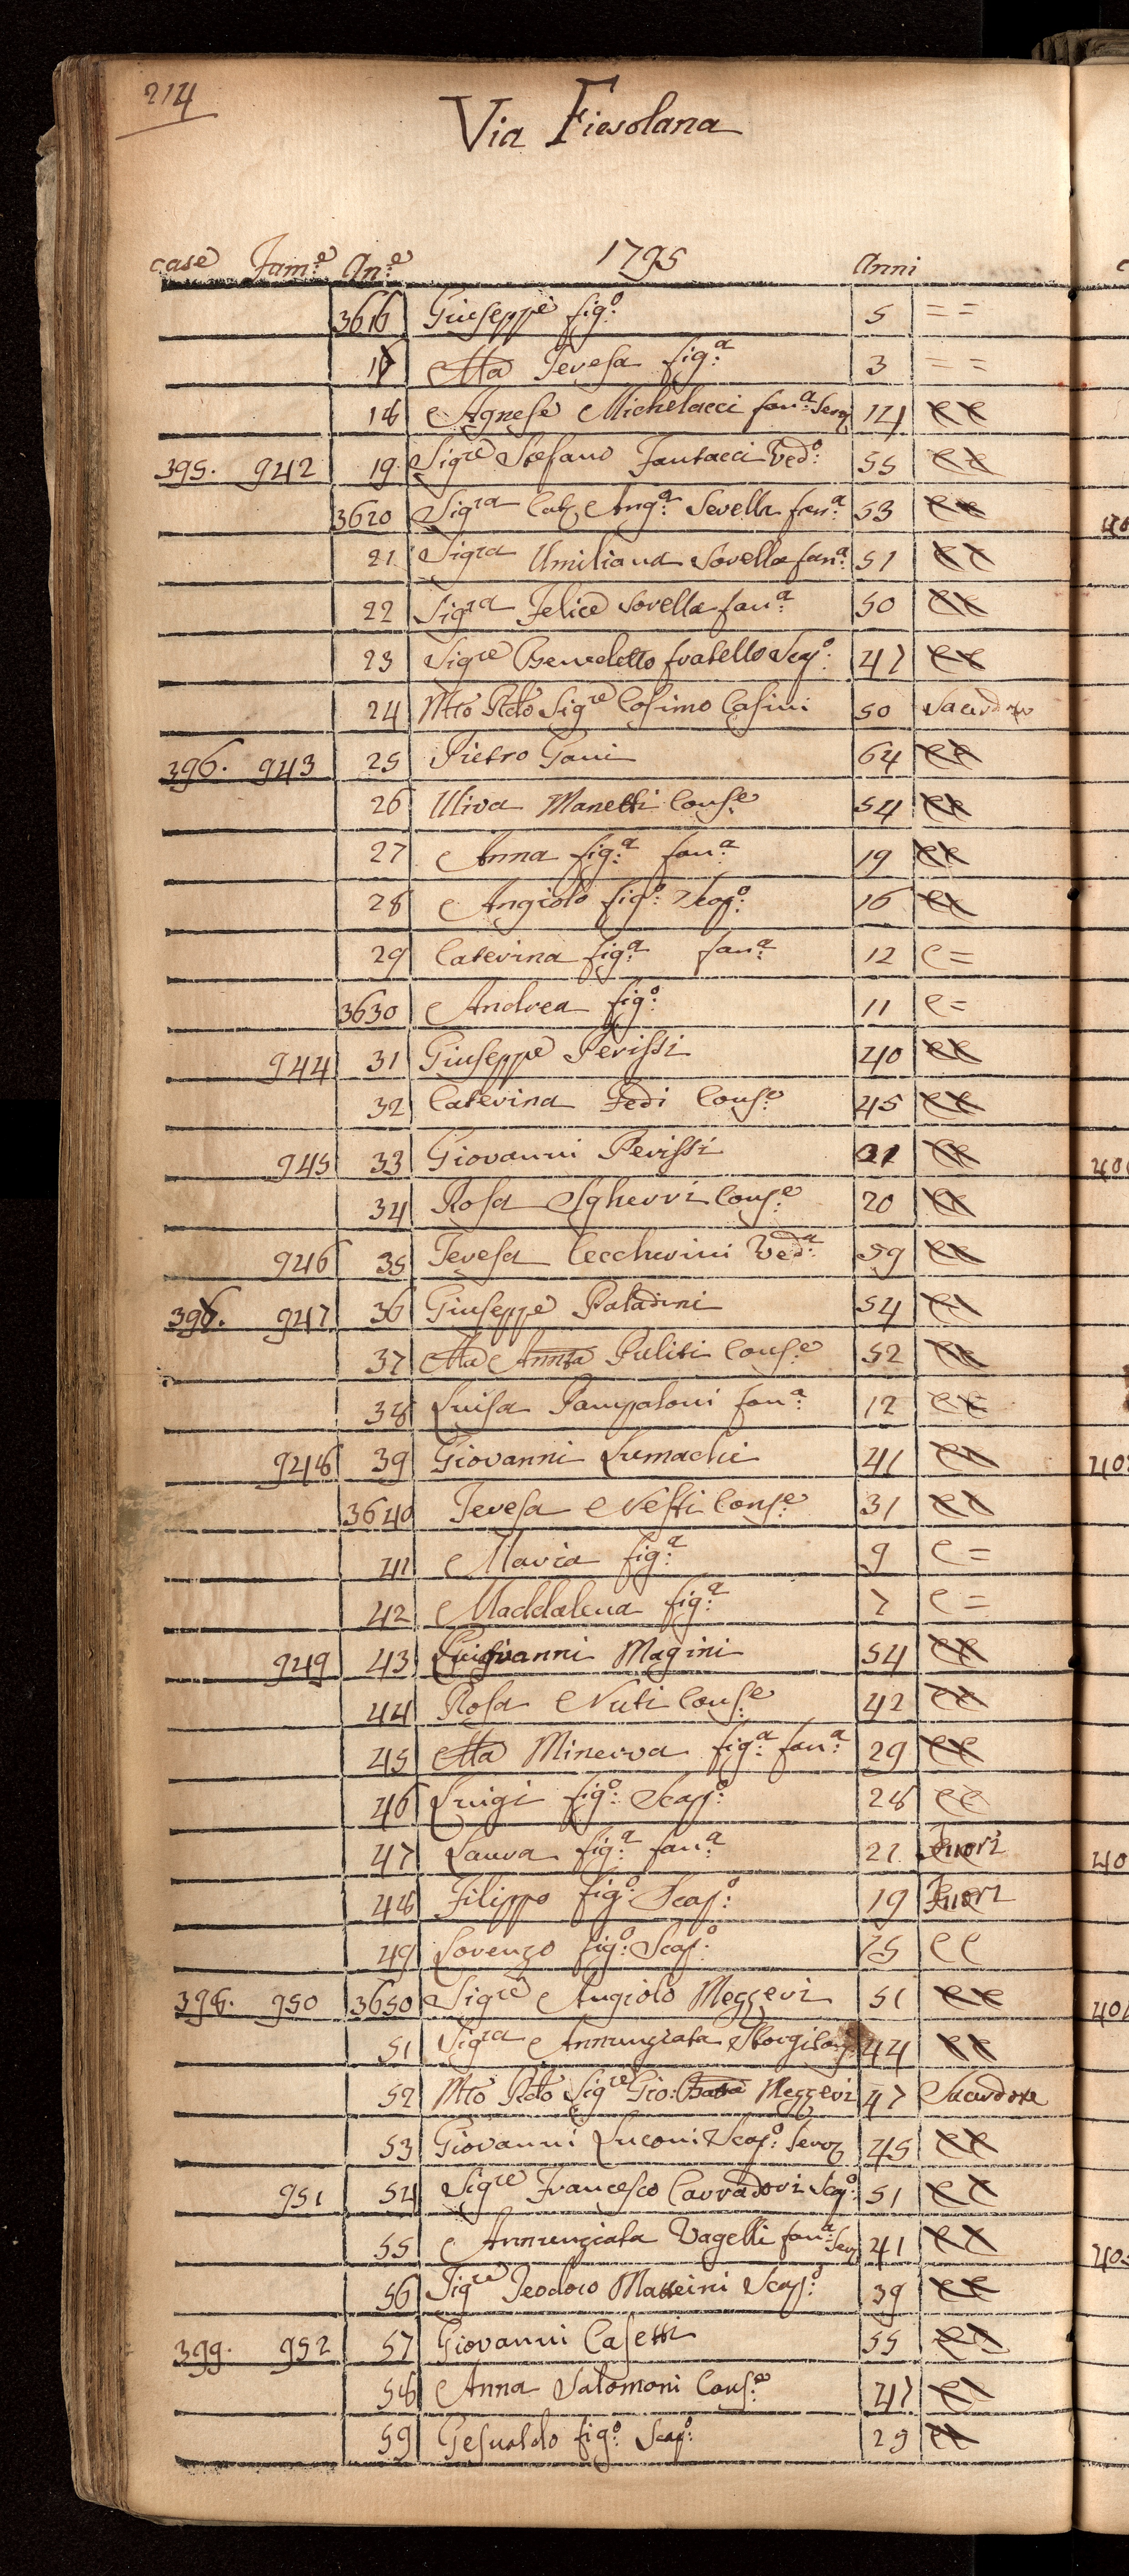 214
Via Fiesolana
case Fam.e An.e 1795 Anni
3616 Giuseppe fig.o 5 = =
17 Ma Teresa fig.a 3 = =
18 Agnese Michelacci fan.a Serv 14 CC
395. 942 19 Sig.re Stefano Fantacci Ved.o 55 CC
3620 Sig.ra Cat. Ang.a Sorella fan.a 53 CC
21 Sig.ra Umiliana Sorella fan.a 51 CC
22 Sig.ra Felice Sorella fan.a 50 CC
23 Sig.re Benedetto fratello Scap.o 47 CC
24 Mto Rdo Sig.re Cosimo Casini 50 Sacerdote
396. 943 25 Pietro Gani 64 CC
26 Uliva Manetti Cons.e 54 CC
27 Anna fig.a fan.a 19 CC
28 Angiolo fig.o Scap.o 16 CC
29 Caterina fig.a fan.a 12 C =
3630 Andrea fig.o 11 C =
944 31 Giuseppe Perissi 40 CC
32 Caterina Fedi Cons.e 45 CC
945 33 Giovanni Perissi 21 CC
34 Rosa Sgherri Cons.e 20 CC
946 35 Teresa Ceccherini Ved.a 59 CC
397. 947 36 Giuseppe Paladini 54 CC
37 Ma Annta Puliti Cons.e 52 CC
38 Luisa Pampaloni fan.a 12 CC
948 39 Giovanni Lumachi 41 CC
3640 Teresa Nesti Cons.e 31 CC
41 Maria fig.a 9 C =
42 Maddalena fig.a 7 C =
949 43 Giovanni Magini 54 CC
44 Rosa Nuti Cons.e 42 CC
45 Ma Minerva fig.a fan.a 29 CC
46 Luigi fig.o Scap.o 28 CC
47 Laura fig.a fan.a 21 Fuori
48 Filippo fig.o Scap.o 19 Fuori
49 Lorenzo fig.o Scap.o 15 CC
398. 950 3650 Sig.re Angiolo Mezzeri 51 CC
51 Sig.ra Annunziata Storgi Cons 44 CC
52 Mto Rdo Sig.re Gio: Batta Mezzeri 47 Sacerdote
53 Giovanni Luconi Scap.o Serv 45 CC
951 54 Sig.re Francesco Carradori Scap.o 51 CC
55 Annunziata Vagelli fan.a Serv 41 CC
56 Sig.re Teodoro Matteini Scap.o 39 CC
399. 952 57 Giovanni Casetti 55 CC
58 Anna Salomoni Cons.e 47 CC
59 Gesualdo fig.o Scap.o 29 CC